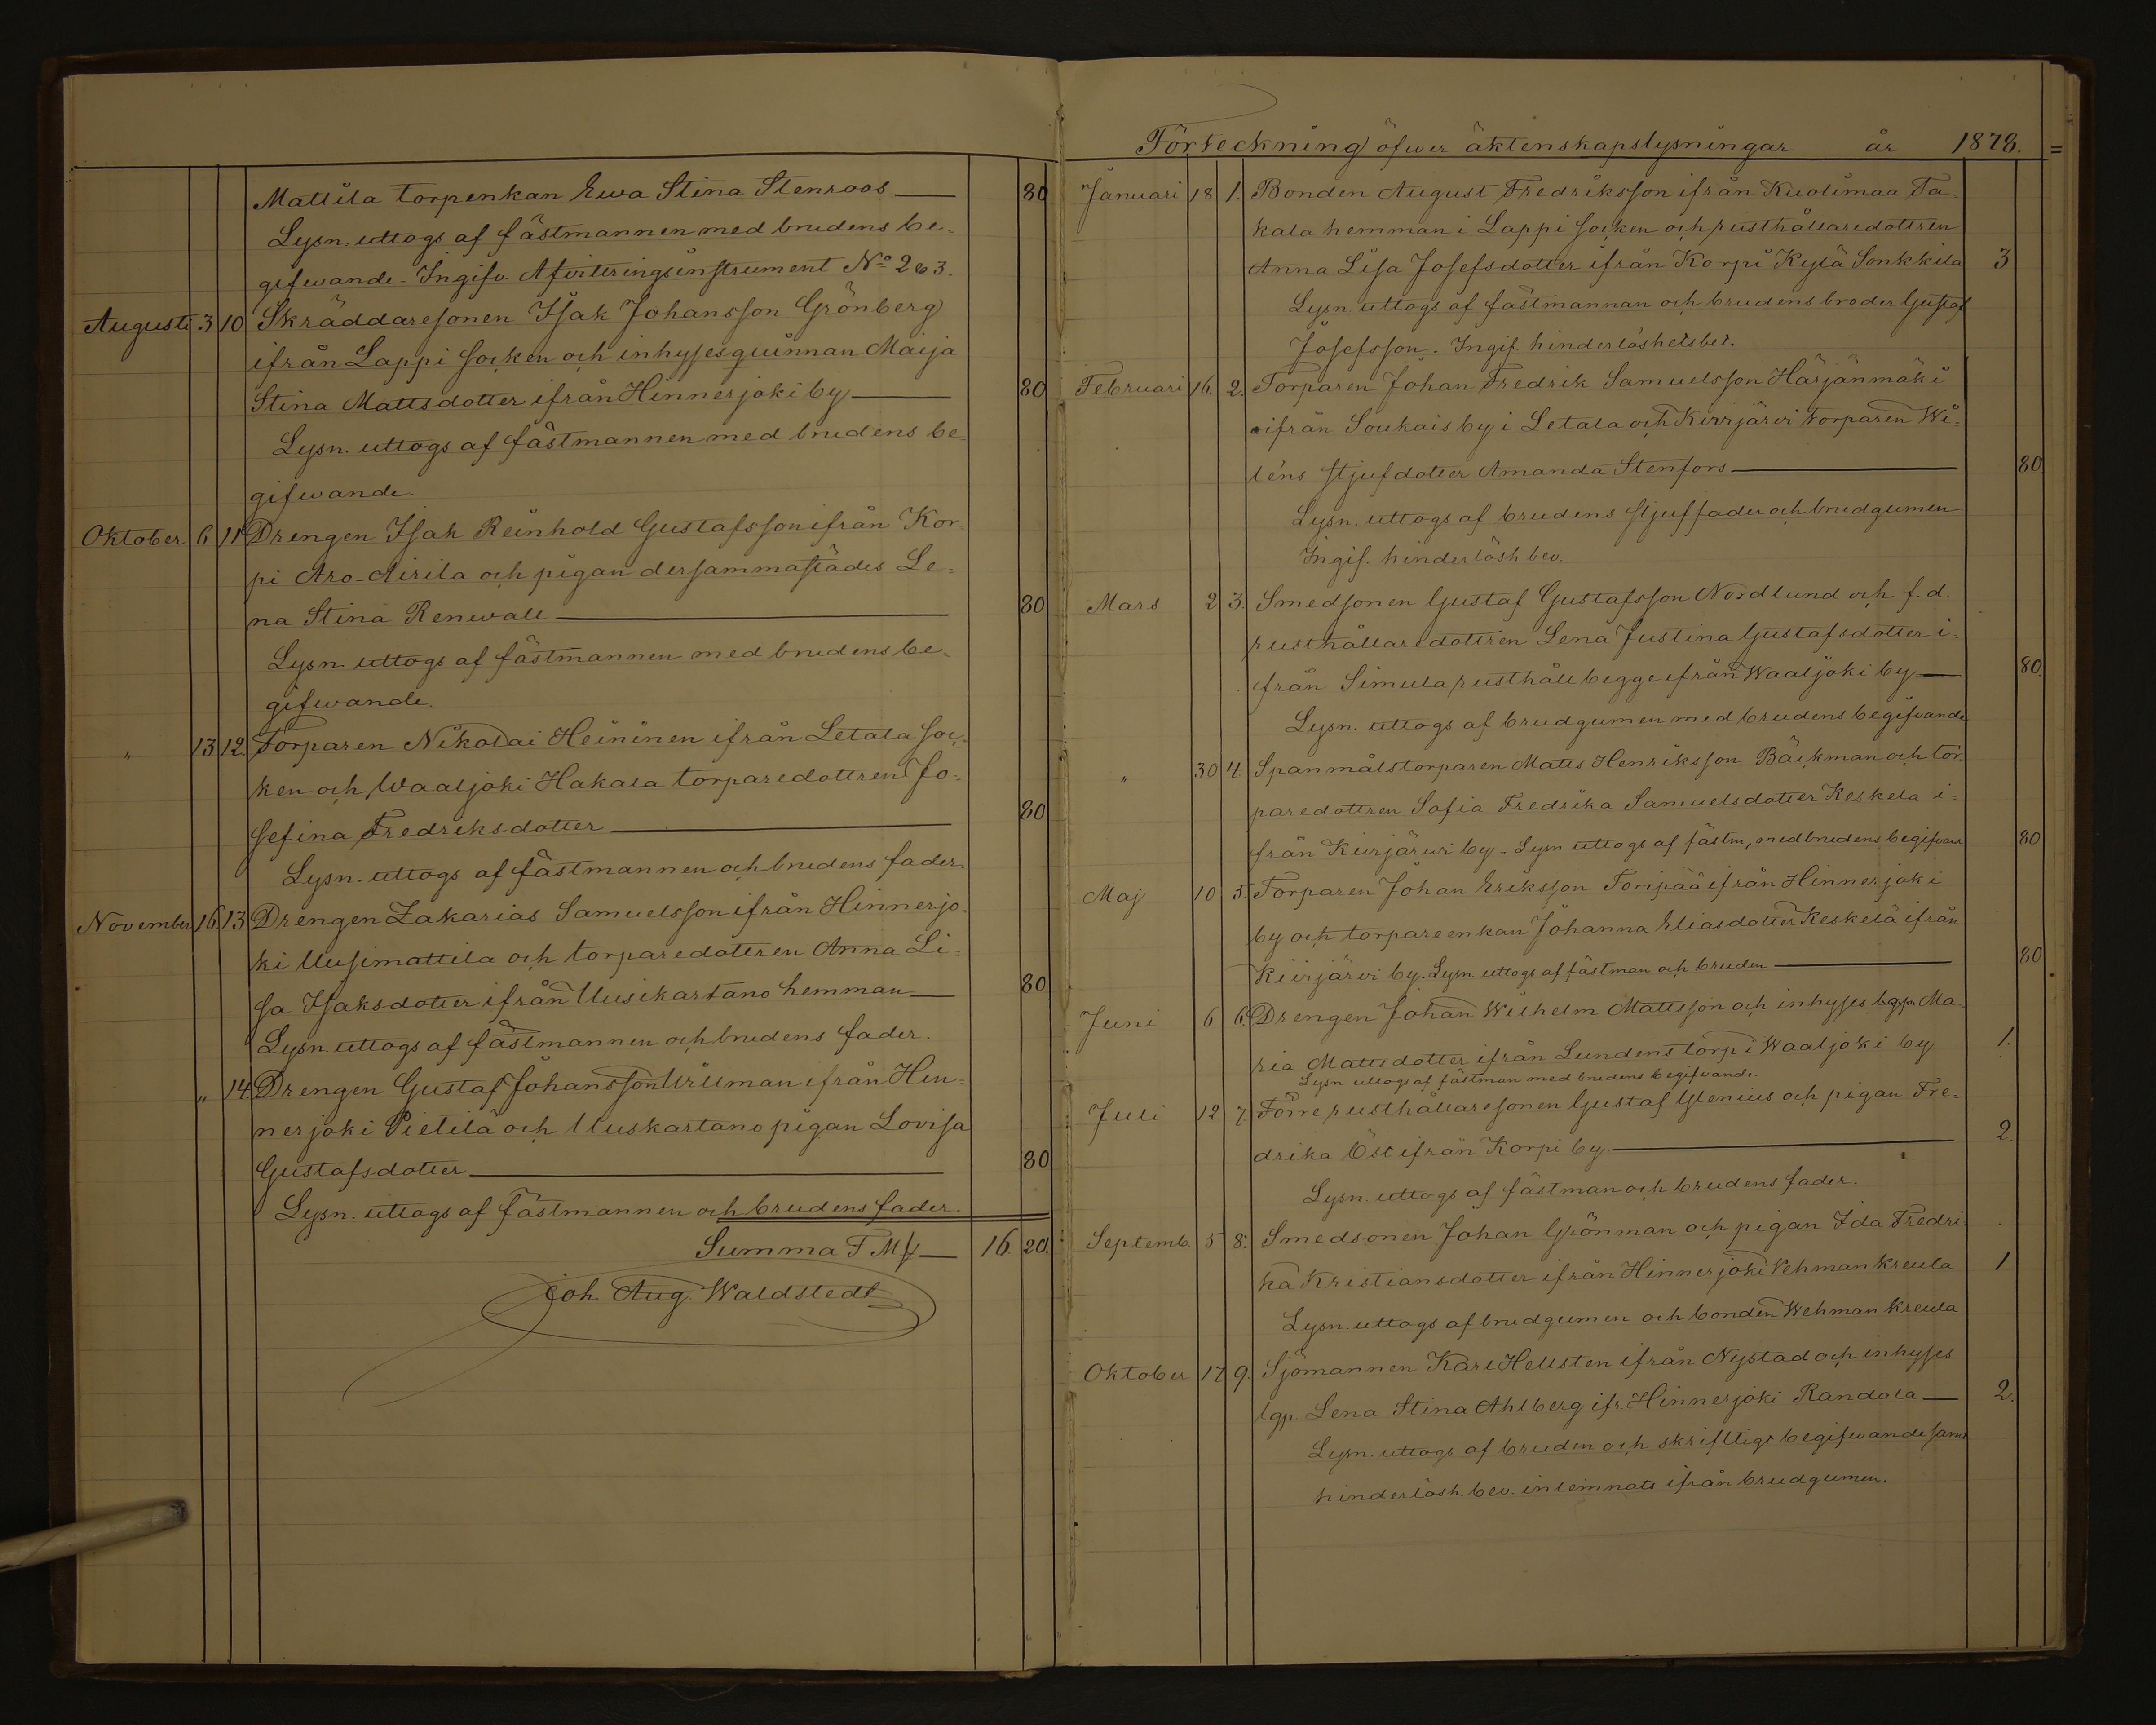 Mattila torpenkan Ewa Stina Stenroos — 80
Lysn. uttogs af fästmannen med brudens be-
gifwande. Ingifv. Afvittringsinstrument No 2 & 3.
Augusti 3 10 Skräddaresonen Isak Johansson Grönberg
ifrån Lappi socken och inhysesqvinnan Maija
Stina Mattsdotter ifrån Hinnerjoki by — 80
Lysn. uttogs af fästmannen med brudens be-
gifwande.
Oktober 6 11 Drengen Isak Reinhold Gustafsson ifrån Kor-
pi Aro-Airila och pigan dersammastädes Le=
na Stina Renwall — 80
Lysn. uttogs af fästmannen med brudens be-
gifwande.
„ 13 12. Torparen Nikolai Heininen ifrån Letala soc-
ken och Waaljoki Hakala torparedottren Jo=
sefina Fredriksdotter — 80
Lysn. uttogs af fästmannen och brudens fader.
November 16. 13 Drengen Zakarias Samuelsson ifrån Hinnerjo-
ki Uusimattila och torparedottren Anna Li=
sa Isaksdotter ifrån Uusikartano hemman — 80
Lysn. uttogs af fästmannen och brudens fader.
„ 14. Drengen Gustaf Johansson ifrån Hin=
nerjoki Pietilä och Uuskartano pigan Lovisa
Gustafsdotter — 80
Lysn. uttogs af fästmannen och brudens fader.
Summa F Mk — 16. 20.
Joh. Aug. Waldstedt
Förteckning öfwer äktenskapslysningar år 1878.
Januari 18 1. Bonden August Fredriksson ifrån Kuolimaa Ta-
kala hemman i Lappi socken och rusthållaredottren
Anna Lisa Josefsdotter ifrån Korpi Kylä Sonkkila 3
Lysn uttogs af fästmannan och brudens broder Gustaf
Josefsson. Ingif. hinderlöshetsbet.
Februari 16. 2. Torparen Johan Fredrik Samuelsson Härjänmäki
ifrån Soukais by i Letala och Kivijärvi torparen Wi=
léns stjufdotter Amanda Stenfors — 80
Lysn. uttogs af brudens stjuffader och brudgumen
Ingif. hinderlösh bev.
Mars 2 3. Smedsonen Gustaf Gustafsson Nordlund och f.d.
rusthållaredottren Lena Justina Gustafsdotter i=
från Simula rusthåll begge ifrån Waaljoki by — 80.
Lysn. uttogs af brudgumen med brudens begifvande
„ 30 4. Spanmålstorparen Matts Henriksson Bäckman och tor-
paredottren Sofia Fredrika Samuelsdotter Keskela i=
från Kivijärwi by - Lysn uttogs af fästm, med brudens begifvand 80
Maj 10 5. Torparen Johan Eriksson Toripää ifrån Hinnerjoki
by och torpareenkan Johanna Eliasdotter Keskelä ifrån
Kivijärvi by. Lysn. uttogs af fästman och bruden — 80
Juni 6 6. Drengen Johan Wilhelm Mattsson och inhyses Ma-
ria Mattsdotter ifrån Lundens torp i Waaljoki by 1.
Lysn uttogs af fästman med brudens begifvande.
Juli 12. 7. Förre rusthållaresonen Gustaf Glenius och pigan Fre=
drika Öst ifrån Korpi by — 2.
Lysn. uttogs af fästman och brudens fader.
Septemb. 5 8. Smedsonen Johan Grönman och pigan Ida Fredri
ka Kristiansdotter ifrån Hinnerjoki Vehmankreula 1
Lysn. uttogs af brudgumen och bonden Wehmankreula
Oktober 17 9. Sjömannen Karl Hellsten ifrån Nystad och inhyses
lgp. Lena Stina Ahlberg ifr. Hinnerjoki Randala — 2.
Lysn. uttogs af bruden och skriftligt begifwande samt
hinderlösh. bev. inlemnats ifrån brudgumen.